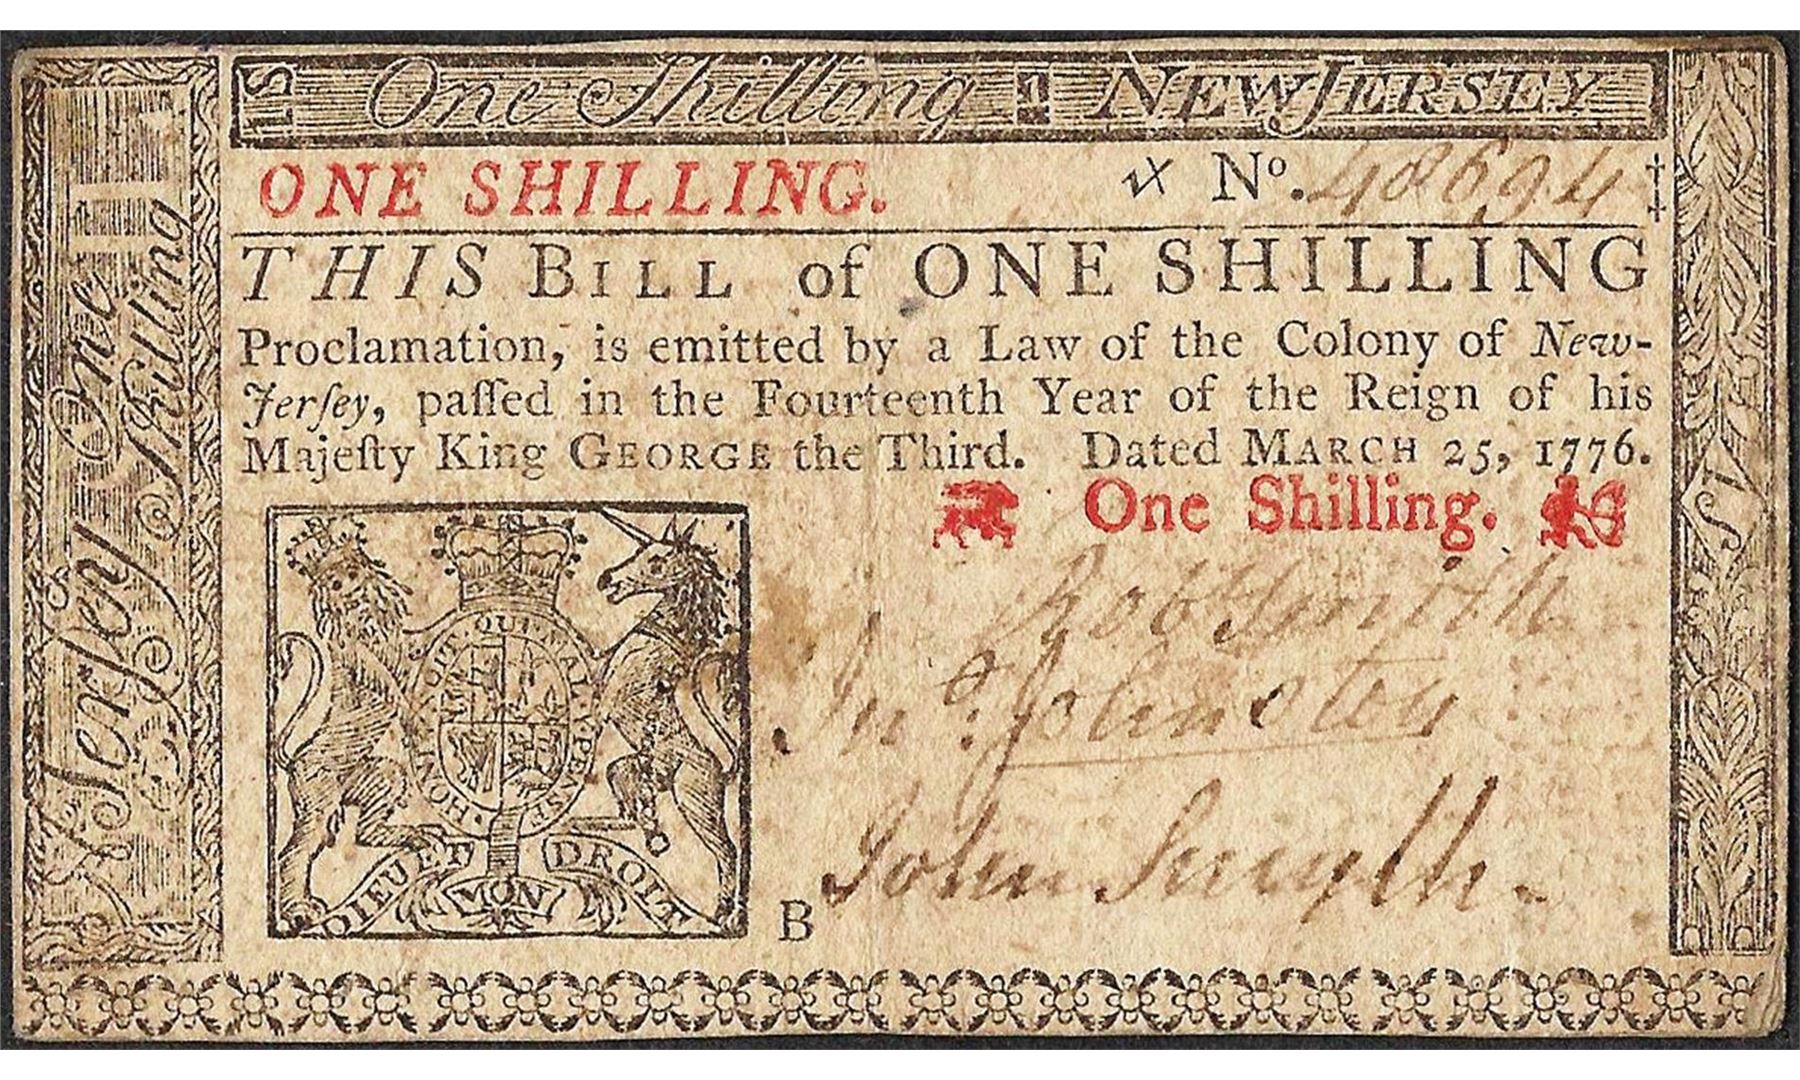 1S One Shilling 1 S NEW JERSEY
ONE SHILLING. No. 48694
THIS BILL of ONE SHILLING
Proclamation, is emitted by a Law of the Colony of New-
Jerſey, paſſed in the Fourteenth Year of the Reign of his
Majeſty King GEORGE the Third. Dated MARCH 25, 1776.
One Shilling.
Robt Smith
Jno. Johnston
John Smyth
B
HONI SOIT QUI MAL Y PENSE
DIEU ET MON DROIT
N Jerſey One
Shilling
1S